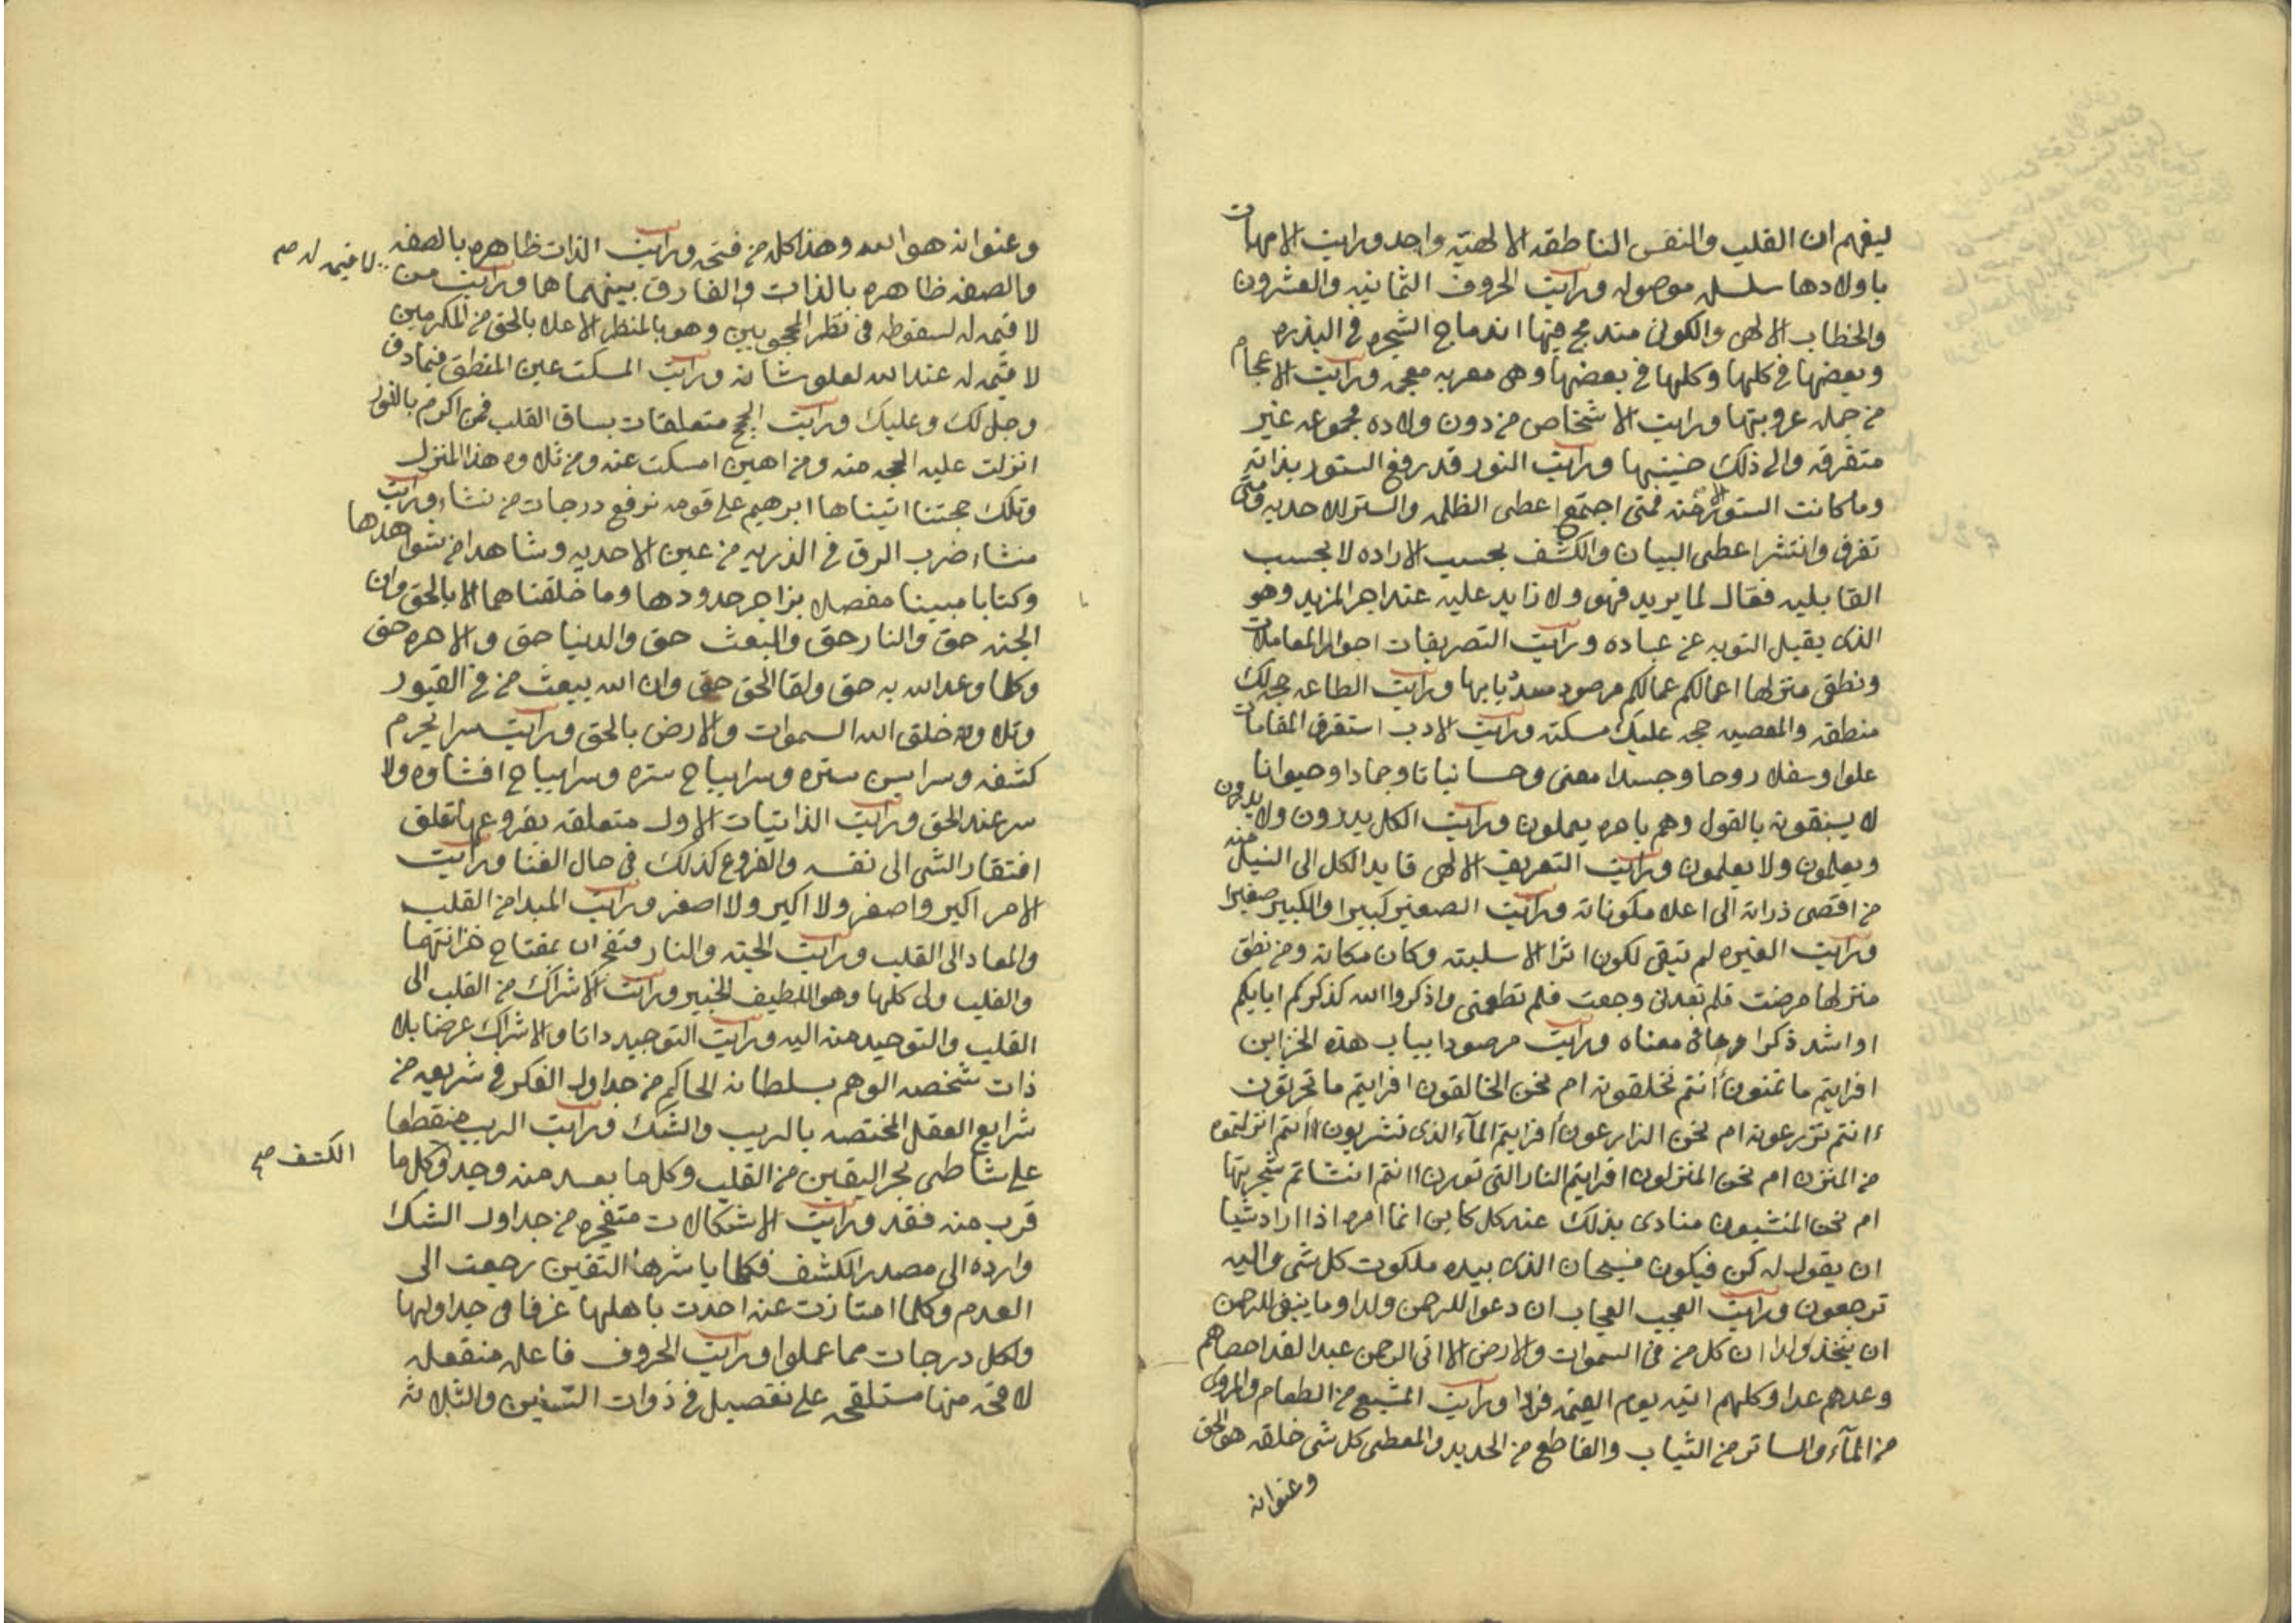 ليفهم ان القلب والنفس الناطقه الالهيه واحد ورايت الامهات
باولادها سلسله موصوله ورايت الحروف الثمانيه والعشرون
والخطاب الالهى والكونى مندمج فيها اندماج الشجره فى البذره
وبعضها فى كلها وكلها فى بعضها وهى معربه معجمه ورايت الاعجام
من جمله عروبتها ورايت الاشخاص من دون ولاده مجموعه غير
متفرقه والى ذلك حنينها ورايت النور قد رفع الستور بذاته
وما كانت الستور الا منه فمتى اجتمع اعطى الظلمه والستر للاحديه ومتى
تفرق وانتشر اعطى البيان والكشف بحسب الاراده لا بحسب
القابليه فقال لما يريد فهو ولا زايد عليه عند اجر المزيد وهو
الذى يقبل التوبه عن عباده ورايت التصريفات احوال المعاملات
ونطق منزلها اعمالكم عمالكم مرصود بابها ورايت الطاعه حجه لك
منطقه والمعصيه حجه عليك مسكته ورايت الادب استغرق المقامات
علوا وسفلا روحا وجسدا معنى وحسا نباتا وجمادا وحيوانا
لا يسبقونه بالقول وهم بامره يعملون ورايت الكل يدرون ولا يدرون
ويعلمون ولا يعلمون ورايت التعريف الالهى قايد الكل الى النيل منه
من اقصى ذراته الى اعلا مكوناته ورايت الصغير كبيرا والكبير صغيرا
ورايت الغيره لم تبقى لكون اثرا الا سلبته وكان مكانه ومن نطق
منزلها مرضت فلم تعدنى وجعت فلم تطعمنى واذكروا الله كذكركم ابايكم
او اشد ذكرا معناه ورايت مرصودا بباب هذه الخزاين
افرايتم ما تمنون أانتم تخلقونه ام نحن الخالقون افرايتم ما تحرثون
ءانتم تزرعونه ام نحن الزارعون افرايتم المآء الذى تشربون أانتم انزلتموه
من المزن ام نحن المنزلون افرايتم النار التى تورون أانتم انشاتم شجرتها
ام نحن المنشيون منادى بذلك عند كل كاين انما امره اذا اراد شيا
ان يقول له كن فيكون فسبحان الذى بيده ملكوت كل شى واليه
ترجعون ورايت العجب العجاب ان دعوا للرحمن ولدا وما ينبغى للرحمن
ان يتخذ ولدا ان كل من فى السموات والارض الا اتى الرحمن عبدا لقد احصاهم
وعدهم عدا وكلهم اتيه يوم القيمه فردا ورايت المشبع من الطعام والمروى
من المآء والساتر من الثياب والقاطع من الحديد والمعطى كل شى خلقه هو الحق
وعنوانه
وعنوانه هو الله وهذا كله من فتحه ورايت الذات ظاهره بالصفه
والصفه ظاهره بالذات والفارق بينهما هما ورايت من
لا قيمه له صح
لا قيمه له لسقوطه فى نظر المحجوبين وهو بالمنظر الاعلا بالحق من المكرمين
لا قيمه له عند الله لعلو شانه ورايت المسكت عين المنطق فيما دق
وجل لك وعليك ورايت الحجج متعلقات بساق القلب فمن اكرم بالنور
انزلت عليه الحجه منه ومن اهين امسكت عنه ومن تلاوه هذا المنزل
وتلك حجتنا اتيناها ابرهيم على قومه نرفع درجات من نشاء ورايت
منشاء ضرب الرق فى الذريه من عين الاحديه وشاهدا من شواهدها
وكتابا مبينا مفصلا حدودها وما خلقناهما الا بالحق وان
الجنه حق والنار حق والبعث حق والدنيا حق والاخره حق
وكلما وعد الله به حق ولقا الحق حق وان الله يبعث من فى القبور
وتلاوته خلق الله السموات والارض بالحق ورايت سرا يحرم
كشفه وسرا يسن ستره وسرا يباح ستره وسرا يباح افشاوه ولا
سر عند الحق ورايت الذاتيات الاول متعلقه بفروعها تعلق
افتقار الشى الى نفسه والفروع كذلك فى حال الفنا ورايت
الامر اكبر واصغر ولا اكبر ولا اصغر ورايت المبدا من القلب
والمعاد الى القلب ورايت الجنه والنار بمفتاح خزانتهما
والقلب ولى كلها وهو اللطيف الخبير ورايت الاشراك من القلب الى
القلب والتوحيد منه اليه ورايت التوحيد ذاتا والاشراك عرضا بلا
ذات شخصه الوهم بسلطانه الحاكم من جداول الفكر فى شريعه من
شرايع العقل المختصه بالريب والشك ورايت الريب منقطعا
على شاطى بحر اليقين من القلب وكل ما بعد منه وجد وكل ما
قرب منه فقد ورايت الاشكالات متفجره من جداول الشك
وارده الى مصدر الكشف فكلما باشرها اليقين رجعت الى
الكشف صح
العدم وكلما امتازت عنه اخذت باهلها غرقا فى جداولها
ولكل درجات مما عملوا ورايت الحروف فاعله منفعله
لاقحه منها مستلقحه على تفصيل فى ذوات والثلاثه